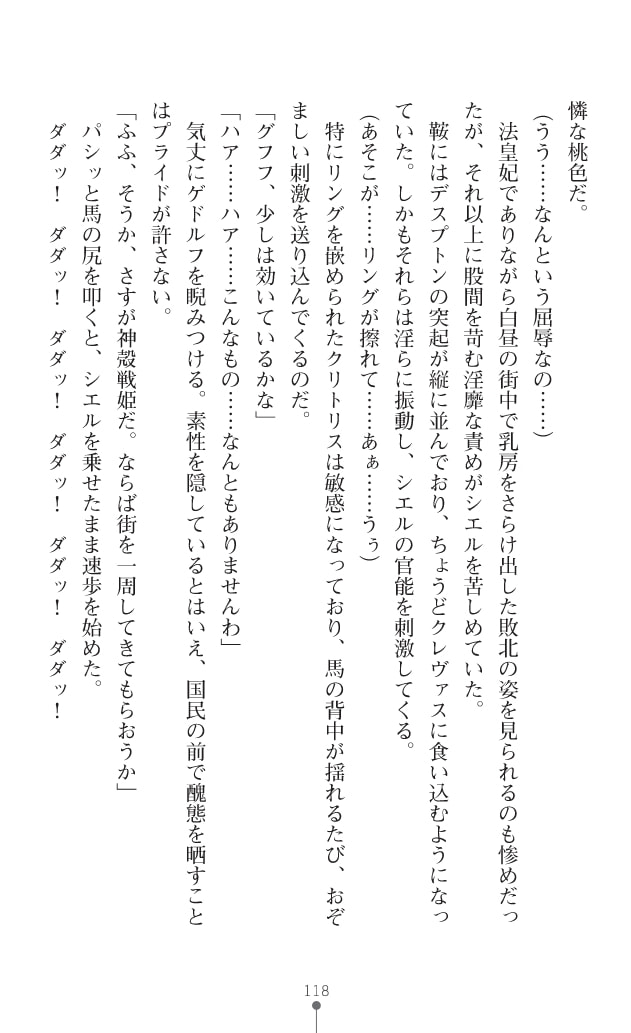 憐な桃色だ。
（うう……なんという屈辱なの……）
　法皇妃でありながら白昼の街中で乳房をさらけ出した敗北の姿を見られるのも惨めだっ
たが、それ以上に股間を苛む淫靡な責めがシエルを苦しめていた。
　鞍にはデスプトンの突起が縦に並んでおり、ちょうどクレヴァスに食い込むようになっ
ていた。しかもそれらは淫らに振動し、シエルの官能を刺激してくる。
（あそこが……リングが擦れて……あぁ……うぅ）
　特にリングを嵌められたクリトリスは敏感になっており、馬の背中が揺れるたび、おぞ
ましい刺激を送り込んでくるのだ。
「グフフ、少しは効いているかな」
「ハア……ハア……こんなもの……なんともありませんわ」
　気丈にゲドルフを睨みつける。素性を隠しているとはいえ、国民の前で醜態を晒すこと
はプライドが許さない。
「ふふ、そうか、さすが神殻戦姫だ。ならば街を一周してきてもらおうか」
　パシッと馬の尻を叩くと、シエルを乗せたまま速歩を始めた。
　ダダッ！　ダダッ！　ダダッ！　ダダッ！　ダダッ！　ダダッ！
118